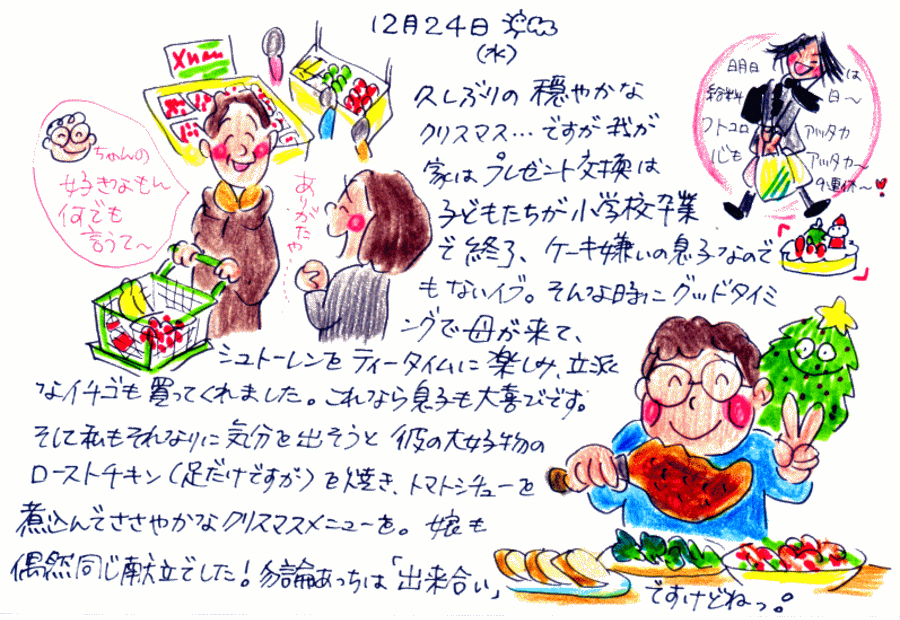 12月24日
(水)
Xmas
ちゃんの
好きなもん
何でも
言うて〜
ありがたや
明日は
給料日〜
フトコロ アッタカ
心も アッタカ〜
9連休〜
久しぶりの穏やかな
クリスマス…ですが我が
家はプレゼント交換は
子どもたちが小学校卒業
で終了、ケーキ嫌いの息子なので
もないイブ。そんな時にグッドタイミ
ングで母が来て、
シュトーレンをティータイムに楽しみ、立派
なイチゴも買ってくれました。これなら息子も大喜びです。
そして私もそれなりに気分を出そうと彼の大好物の
ローストチキン(足だけですが)を焼き、トマトシチューを
煮込んでささやかなクリスマスメニューを。娘も
偶然同じ献立でした!勿論あっちは「出来合い」ですけどねっ。